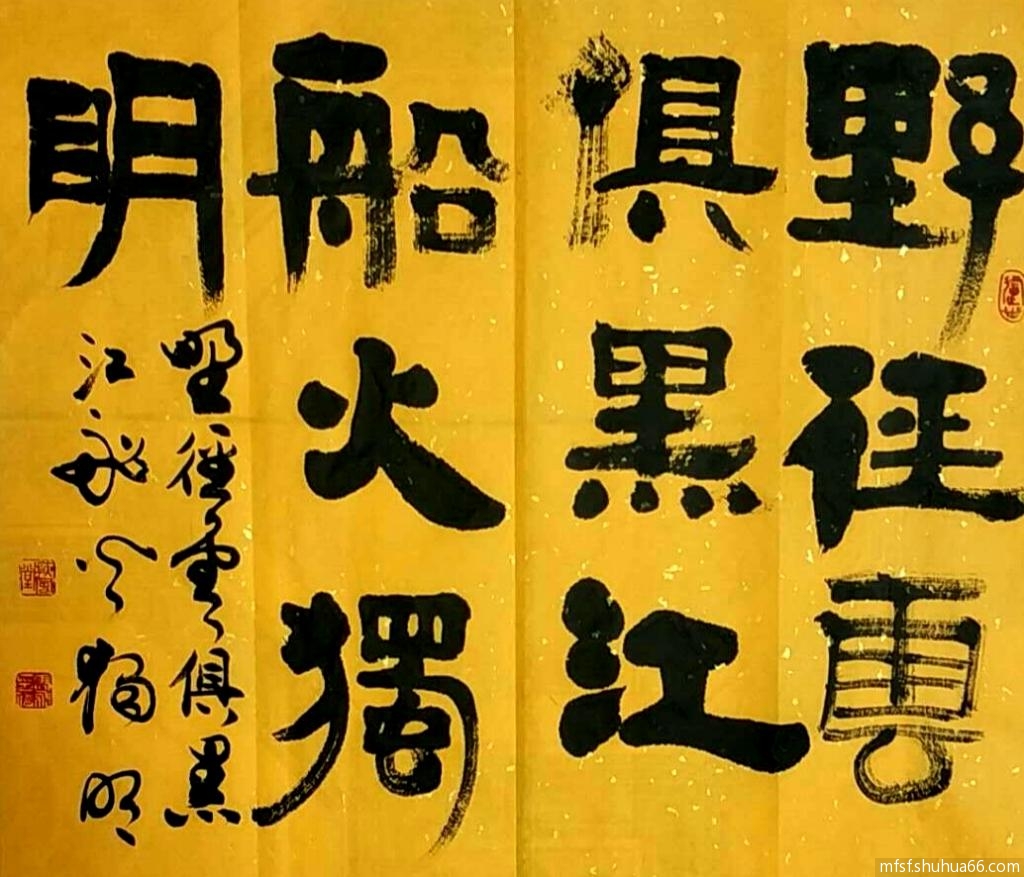 野径雲
俱黑江
船火獨
明
野径雲俱黑
江船火獨明
mfsf.shuhua66.com